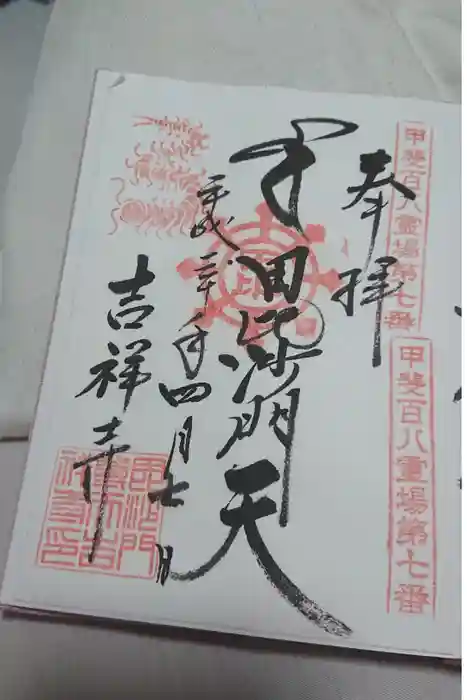 甲斐百八霊場第七番
甲斐百八霊場第七番
奉拝
毘沙門天
平成二十八年四月七日
吉祥寺